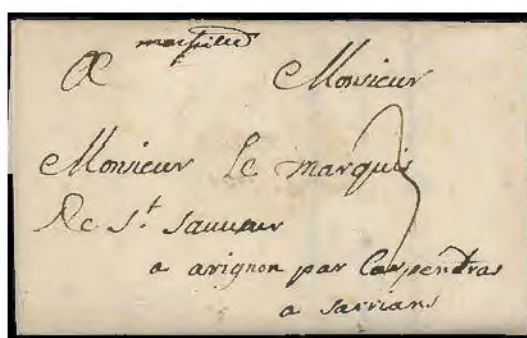 marseille
A Monsieur
Monsieur le marquis
De St. sauveur
a avignon par Carpentras
a sarrians